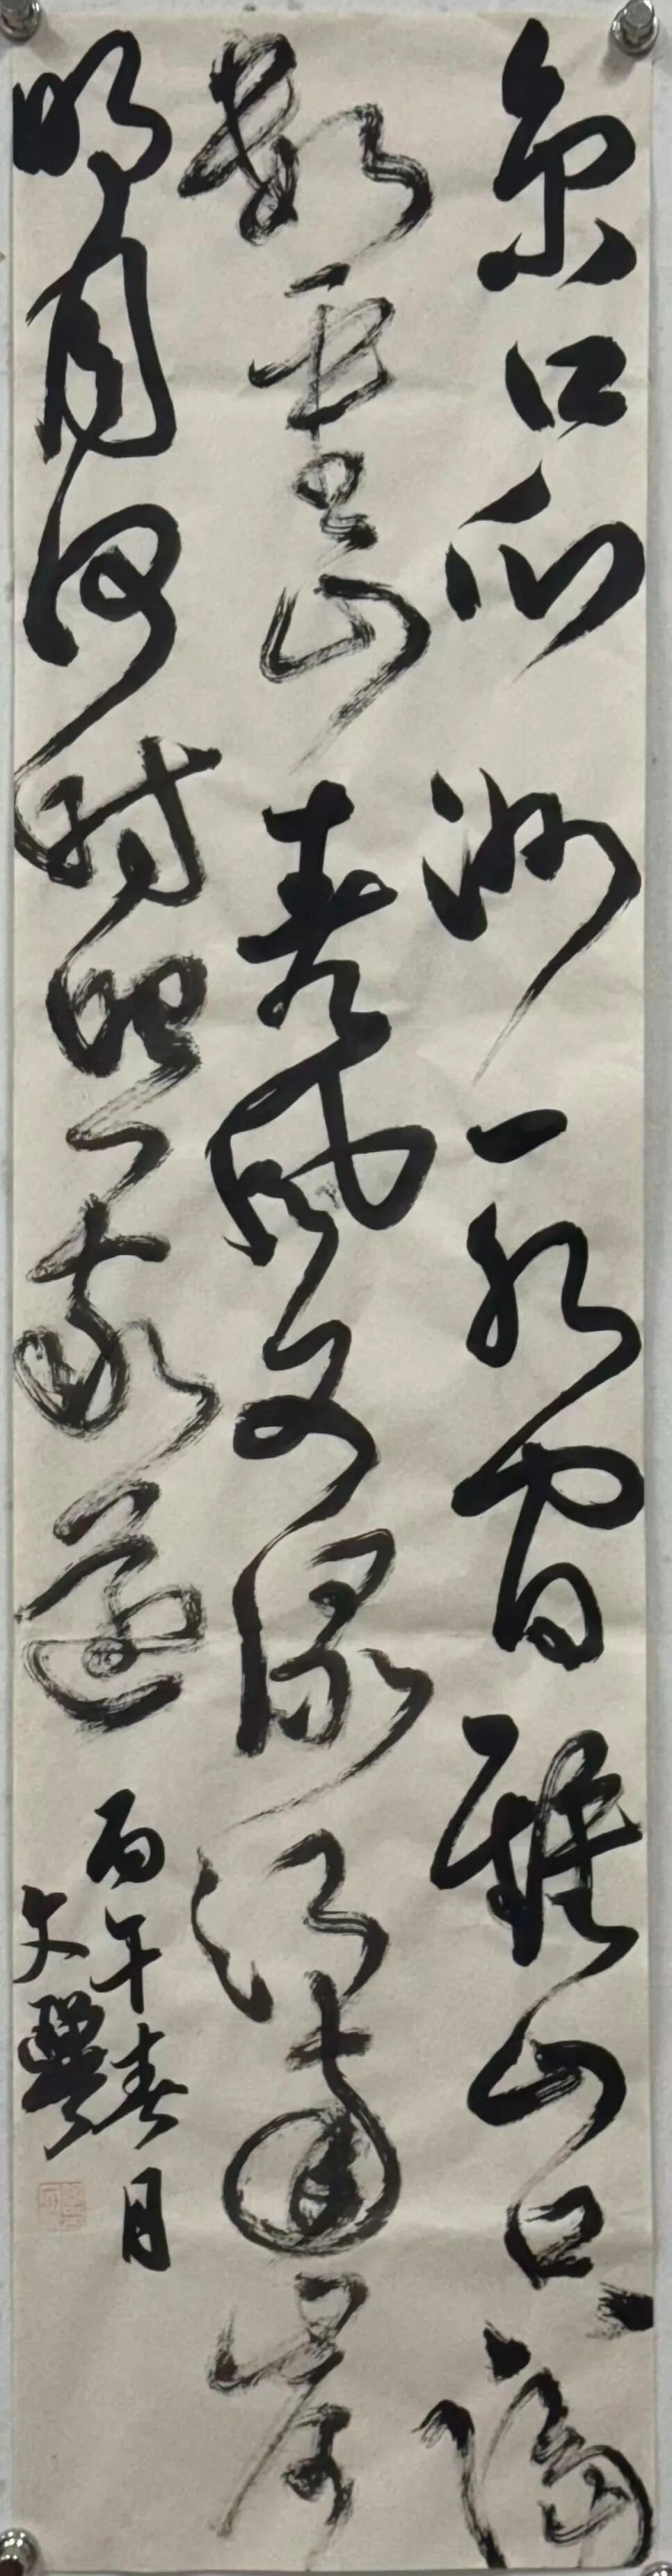 京口瓜洲一水間鍾山只隔
數重山春風又綠江南岸
明月何時照我還
丙午春月
文